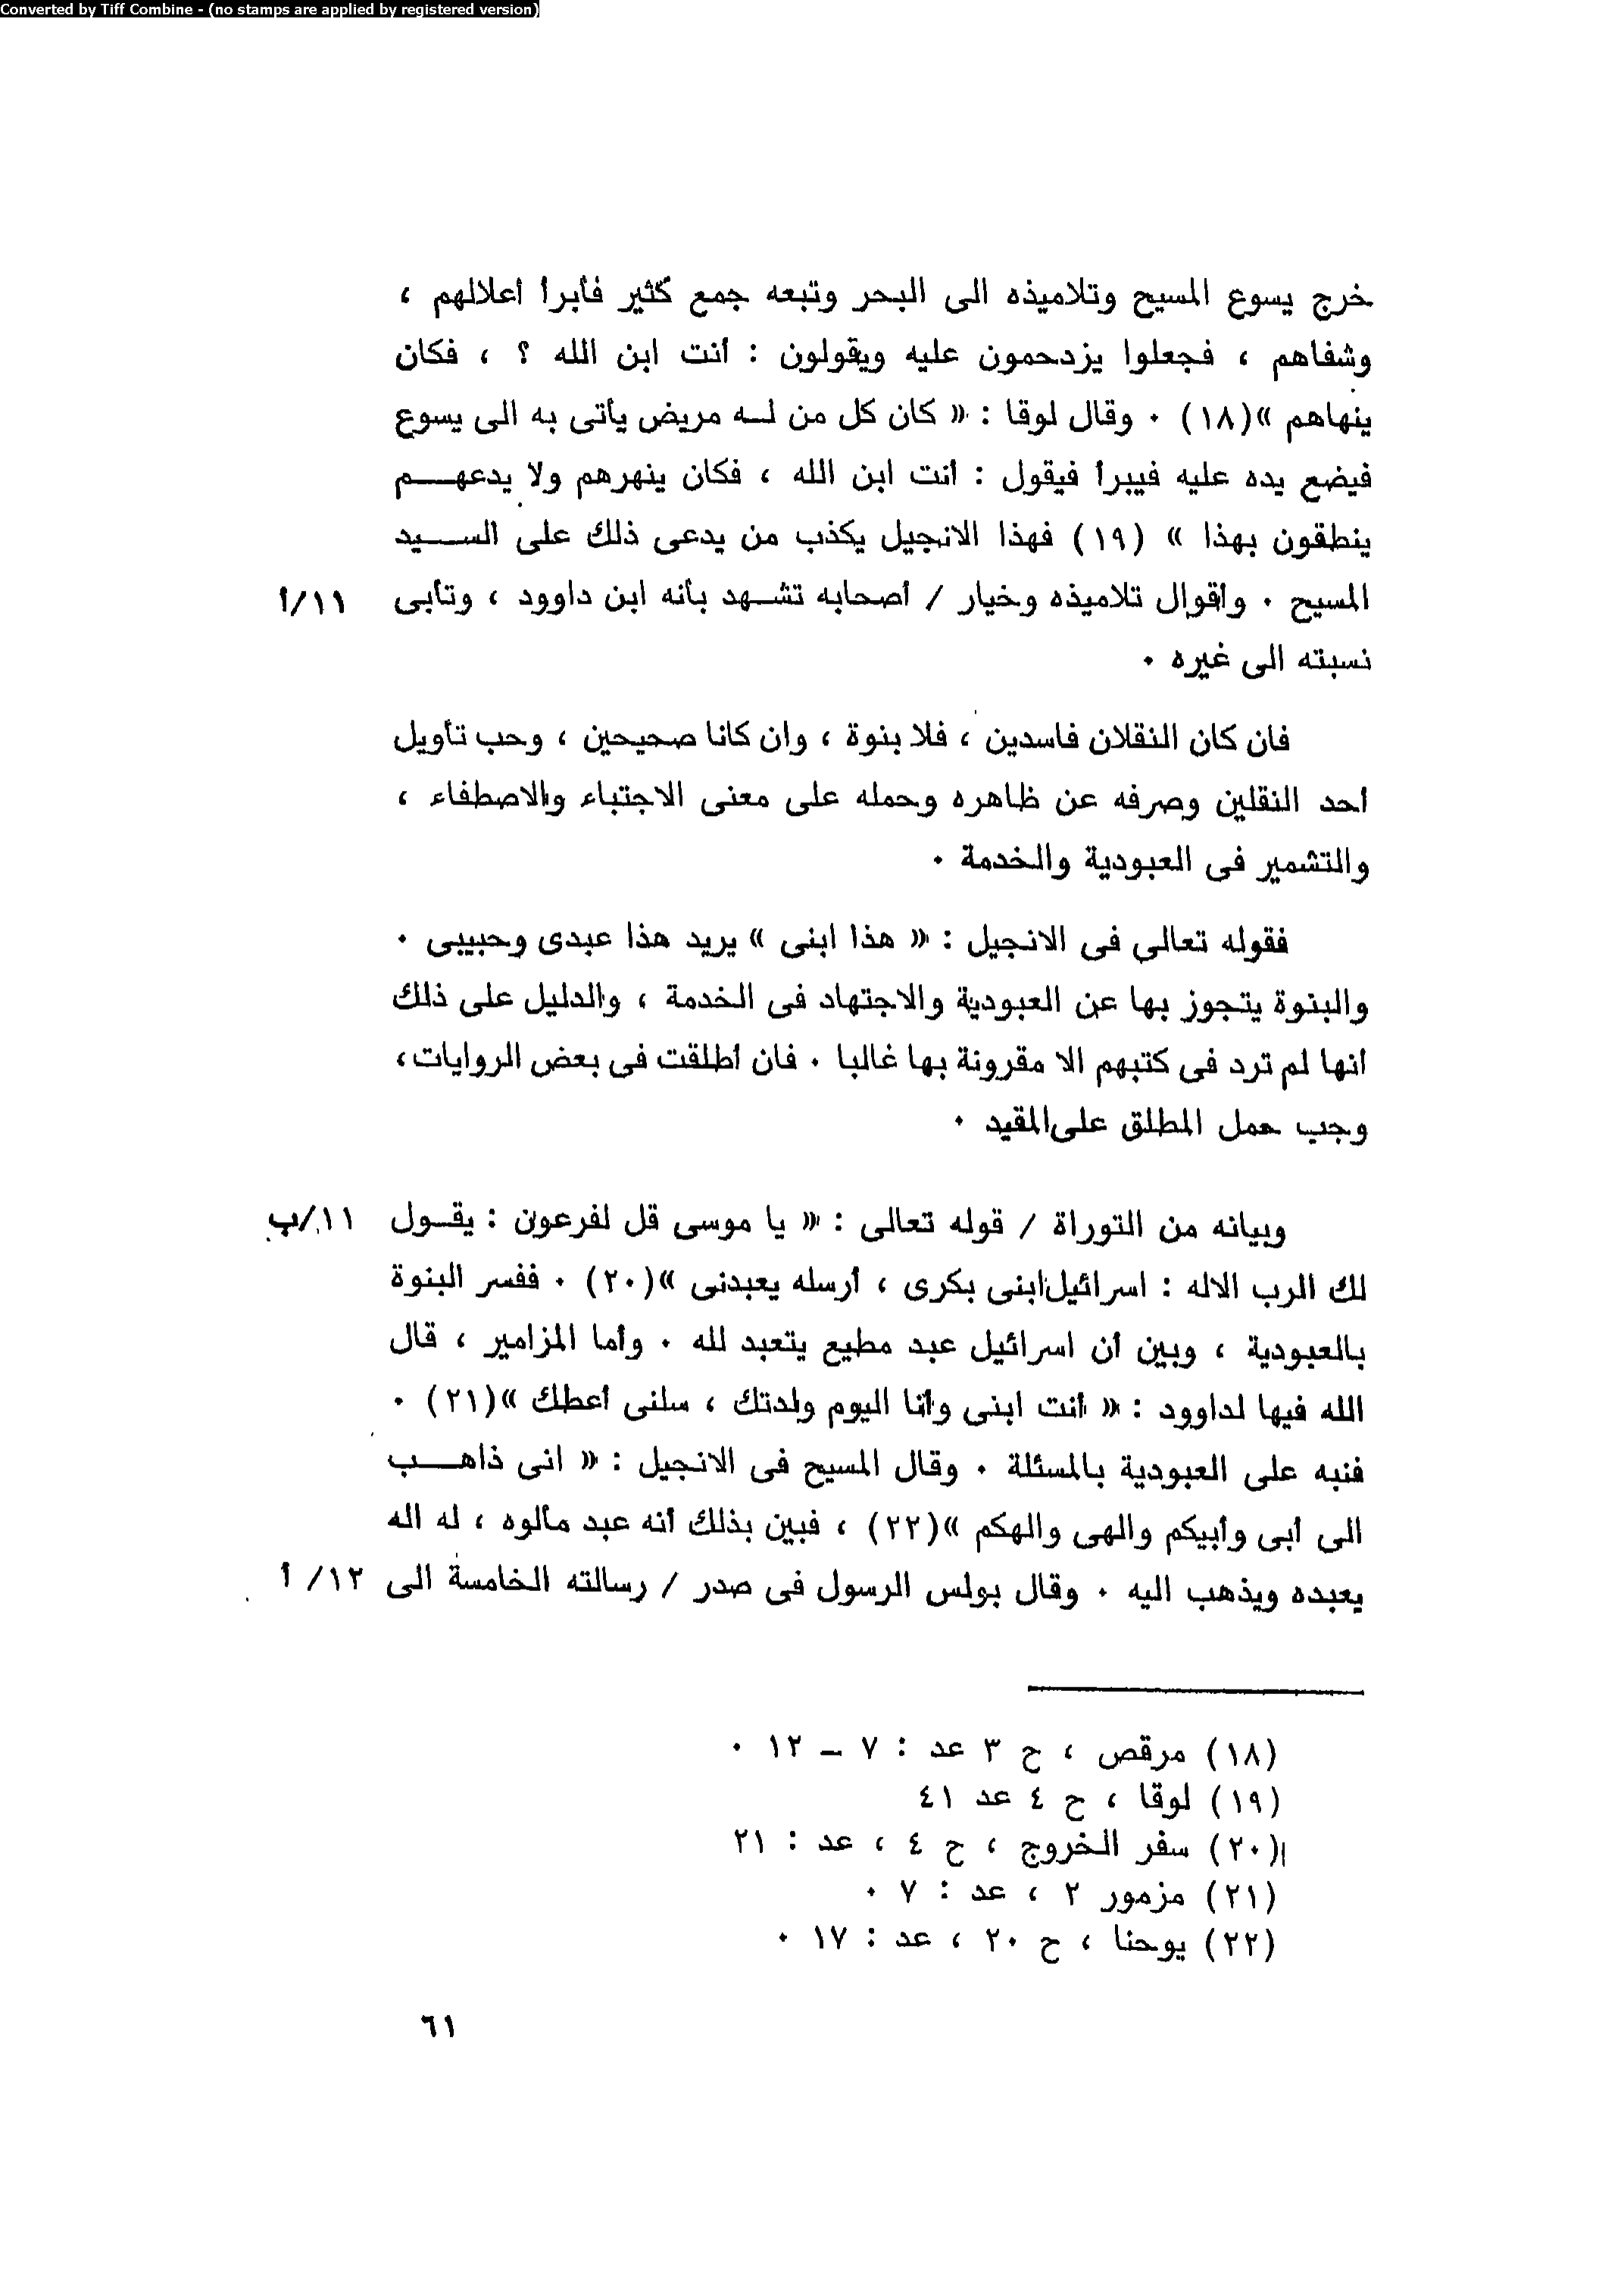 Converted by Tiff Combine - (no stamps are applied by registered version)
خرج يسوع المسيح وتلاميذه الى البحر وتبعه جمع كثير فأبرأ أعلالهم ،
وشفاهم ، فجعلوا يزدحمون عليه ويقولون : أنت ابن الله ؟ ، فكان
ينهاهم »(١٨) ٠ وقال لوقا : « كان كل من لـه مريض يأتى به الى يسوع
فيضع يده عليه فيبرأ فيقول : أنت ابن الله ، فكان ينهرهم ولا يدعهـــم
ينطقون بهذا » (١٩) فهذا الانجيل يكذب من يدعى ذلك على الســـيد
المسيح ٠ وأقوال تلاميذه وخيار / أصحابه تشـهد بأنه ابن داوود ، وتأبى ١١/أ
نسبته الى غيره ٠
فان كان النقلان فاسدين ، فلا بنوة ، وان كانا صحيحين ، وحب تأويل
أحد النقلين وصرفه عن ظاهره وحمله على معنى الاجتباء والاصطفاء ،
والتشمير فى العبودية والخدمة ٠
فقوله تعالى فى الانجيل : « هذا ابنى » يريد هذا عبدى وحبيبى ٠
والبنوة يتجوز بها عن العبودية والاجتهاد فى الخدمة ، والدليل على ذلك
أنها لم ترد فى كتبهم الا مقرونة بها غالبا ٠ فان أطلقت فى بعض الروايات،
وجب حمل المطلق على المقيد ٠
وبيانه من التوراة / قوله تعالى : « يا موسى قل لفرعون : يقـول ١١/ب
لك الرب الاله : اسرائيل ابنى بكرى ، أرسله يعبدنى »(٢٠) ٠ ففسر البنوة
بالعبودية ، وبين أن اسرائيل عبد مطيع يتعبد لله ٠ وأما المزامير ، قال
الله فيها لداوود : « أنت ابنى وأنا اليوم ولدتك ، سلنى أعطك »(٢١) ٠
فنبه على العبودية بالمسئلة ٠ وقال المسيح فى الانجيل : « انى ذاهـــب
الى أبى وأبيكم والهى والهكم »(٢٢) ، فبين بذلك أنه عبد مألوه ، له اله
يعبده ويذهب اليه ٠ وقال بولس الرسول فى صدر / رسالته الخامسة الى ١٢/ أ
(١٨) مرقص ، ح ٣ عد : ٧ – ١٢ ٠
(١٩) لوقا ، ح ٤ عد ٤١
(٢٠) سفر الخروج ، ح ٤ ، عد : ٢١
(٢١) مزمور ٢ ، عد : ٧ ٠
(٢٢) يوحنا ، ح ٢٠ ، عد : ١٧ ٠
٦١